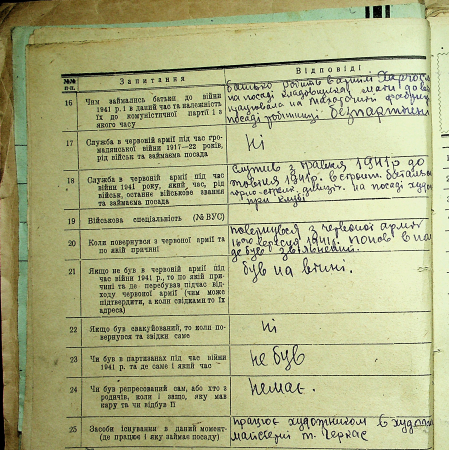 №№ п-п.
Запитання
Відповіді
16
Чим займались батьки до війни
1941 р. і в даний час та належність
їх до комуністичної партії і з
якого часу
батько робить в артілі
на посаді мати до
працювала на фабриці
посаді робітниці безпартійні
17
Служба в червоній армії під час гро-
мадянської війни 1917—22 років,
рід військ та займаєма посада
Ні
18
Служба в червоній армії під час
війни 1941 року, який час, рід
військ, останнє військове звання
та займаєма посада
Служив з травня 1941 р до
жовтня 1941 р. в строит. батальоні
на посаді
при клубі
19
Військова спеціальність (№ ВУС)
20
Коли повернувся з червоної армії та
по якій причині
повернувся з червоної армії
вересня 1941 р. попав в
де був звільнений.
21
Якщо не був в червоній армії під
час війни 1941 р., то по якій при-
чині та де перебував підчас від-
ходу червоної армії (чим може
підтвердити, а коли свідками то їх
адреса)
був на війні.
22
Якщо був евакуйований, то коли по-
вернувся та звідки саме
ні
23
Чи був в партизанах під час війни
1941 р. та де саме і який час
не був
24
Чи був репресований сам, або хто з
родичів, коли і защо, яку мав
кару та чи відбув її
немає.
25
Засоби існування в даний момент-
(де працює і яку займає посаду)
працює художником в
майстерні м. Черкас